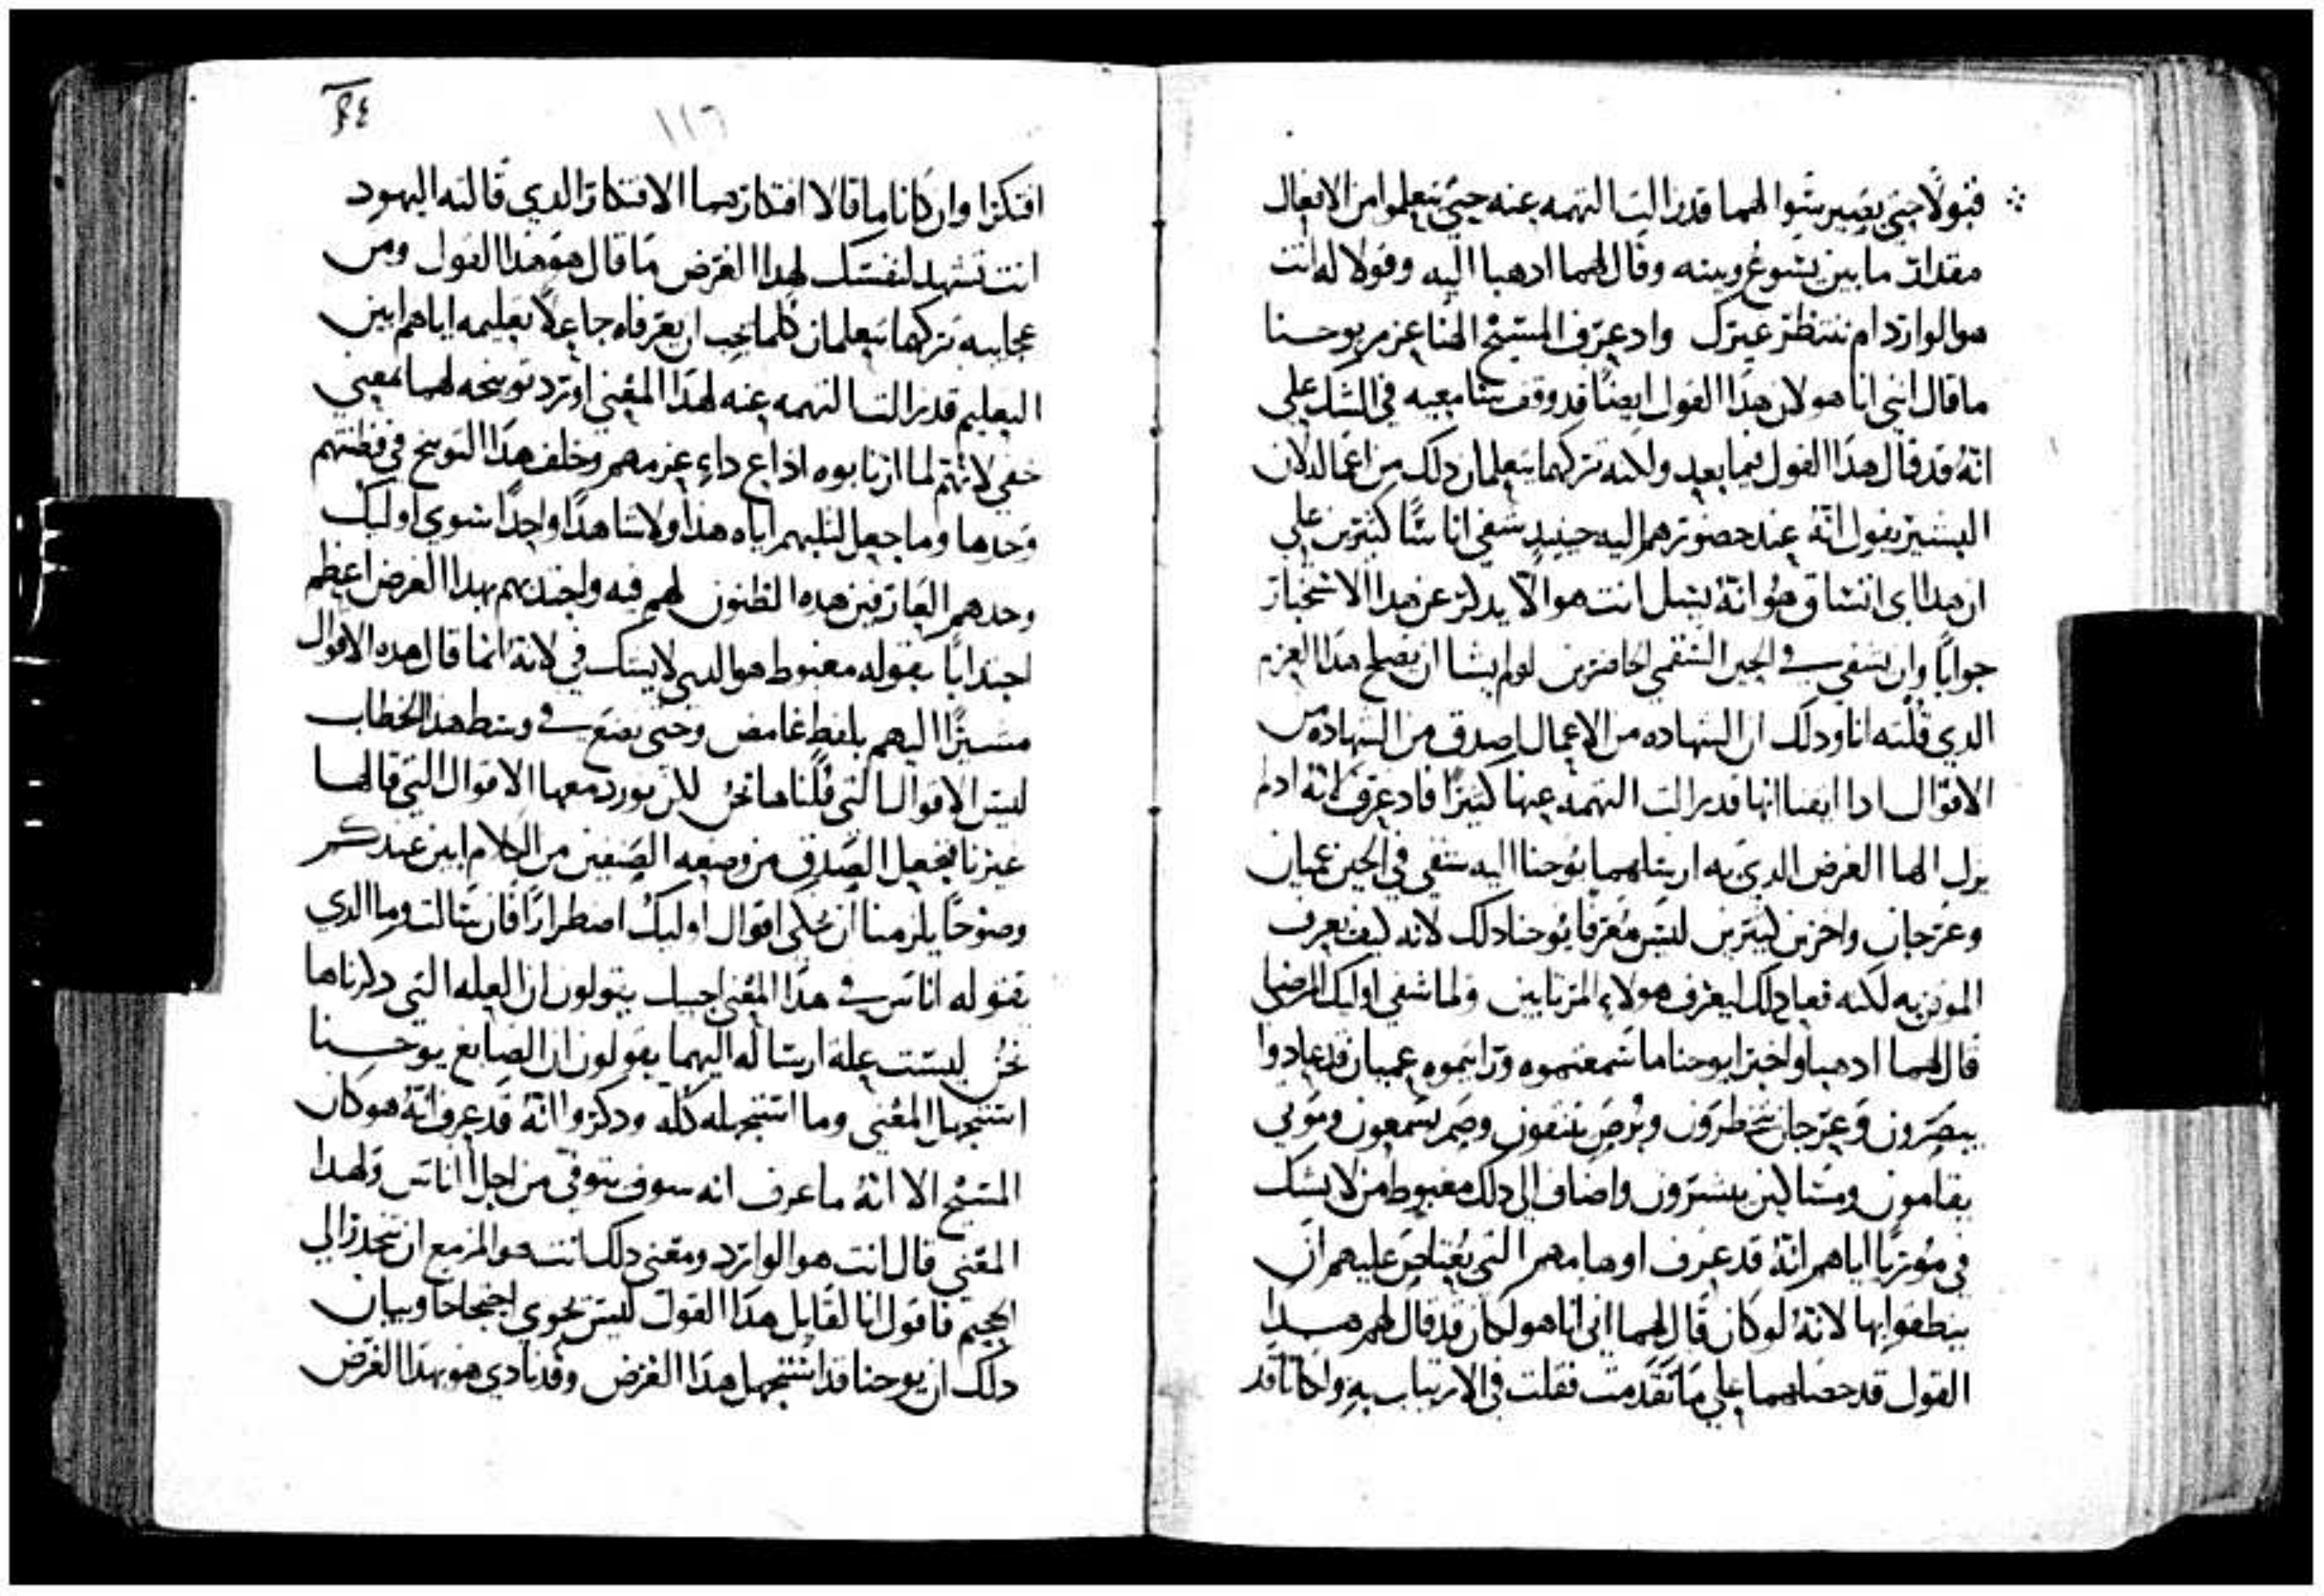 قبولا حتي يصير سوا لهما قد زالت التهمه عنه حتي يتعلموا من الافعال
مقدار ما بين يشوع وبينه وقال لهما ادهبا اليه وقولا له انت
هو الوارد ام ننتظر غيرك واد عرف المسيح الهنا عزم يوحنا
ما قال انني انا هو لان هدا القول ايضا قد وقف سامعيه في الشك علي
انه قد قال هدا القول فيما بعد ولكنه تركهما يتعلمان دلك من اعماله لان
البشير يقول انه عند حضورهم اليه حينيد شفي اناسا كثيرين علي
ان هدا اي اتساق هو انه يسل انت هو الا يدكر عن هدا الاستخبار
جوابا وان يشفي في الحين السقمي الحاضرين لو لم يشا ان يصلح هدا العزم
الدي قلته انا ودلك ان الشهاده من الاعمال اصدق من الشهاده من
الاقوال ادا ايضا انها قد زالت التهمه عنها كثيرا فاد عرف انه اد لم
يزل الها الغرض الدي به ارسلهما يوحنا اليه شفي في الحين عميان
وعرجان واخرين كثيرين ليس معرفا يوحنا دلك لانه كيف يعرف
الموقن به لكنه فعل دلك ليعرف هولاء المرتابين ولما شفي اوليك المرضي
قال لهما ادهبا واخبرا يوحنا ما سمعتموه ورايتموه عميان قد عادوا
يبصرون وعرجان يخطرون وبرص ينقون وصم يسمعون وموتي
يقامون ومساكين يبشرون واضاف الي دلك مغبوط من لا يشك
في موريا اياهم انه قد عرف اوهامهم التي يعتاص عليهم ان
ينطقوا بها لانه لو كان قال لهما اني انا هو لكان قد قال لهم هدا
القول قد حصلهما علي ما تقدمت فقلت في الارتياب به ولكانا قد
١١٦
افتكرا وان كانا ما قالا افتكارهما الافتكار الدي قالته اليهود
انت تشهد لنفسك لهدا الغرض ما قال هو هدا القول ومن
عجايبه تركهما يتعلمان كلما يجب ان يعرفاه جاعلا تعليمه اياهم ابين
التعليم قد زالت التهمه عنه لهدا المعني اورد توبيخه لهما بمعني
خفي لانهم لما ارتابوه اداع داء عزمهم وخلف هدا التوبيخ في فطنتهم
وحدها وما جعل لثلبهم اياه هدا ولا شاهدا واحدا سوي اوليك
وحدهم العارفين هده الظنون لهم فيه واجتدبهم بهدا الغرض اعظم
اجتدابا بقوله مغبوط هو الدي لا يشك في لانه انما قال هده الاقوال
مشيرا اليهم بلفظ غامض وحتي نضع في وسط هدا الخطاب
ليس الاقوال التي قلناها نحن لكن نورد معها الاقوال التي قالها
غيرنا فيجعل الصدق من وضعه الصنفين من الكلام ابين عندكم
وضوحا يلزمنا ان نحكي اقوال اوليك اضطرارا فان سالت وما الدي
يقوله اناس في هدا المعني اجيبك يقولون ان العله التي دكرناها
نحن ليست علة ارساله اليهما يقولون ان الصابغ يوحنا
استجهل المعني وما استجهله كله ودكروا انه قد عرف انه هو كان
المسيح الا انه ما عرف انه سوف يتوفي من اجل اناس ولهدا
المعني قال انت هو الوارد ومعني دلك انت هو المزمع ان تحدر الي
الجحيم فاقول انا لقايل هدا القول ليس يحوي احتجاجا وبيان
دلك ان يوحنا قد استجهل هدا الغرض وقد نادي هو بهدا الغرض